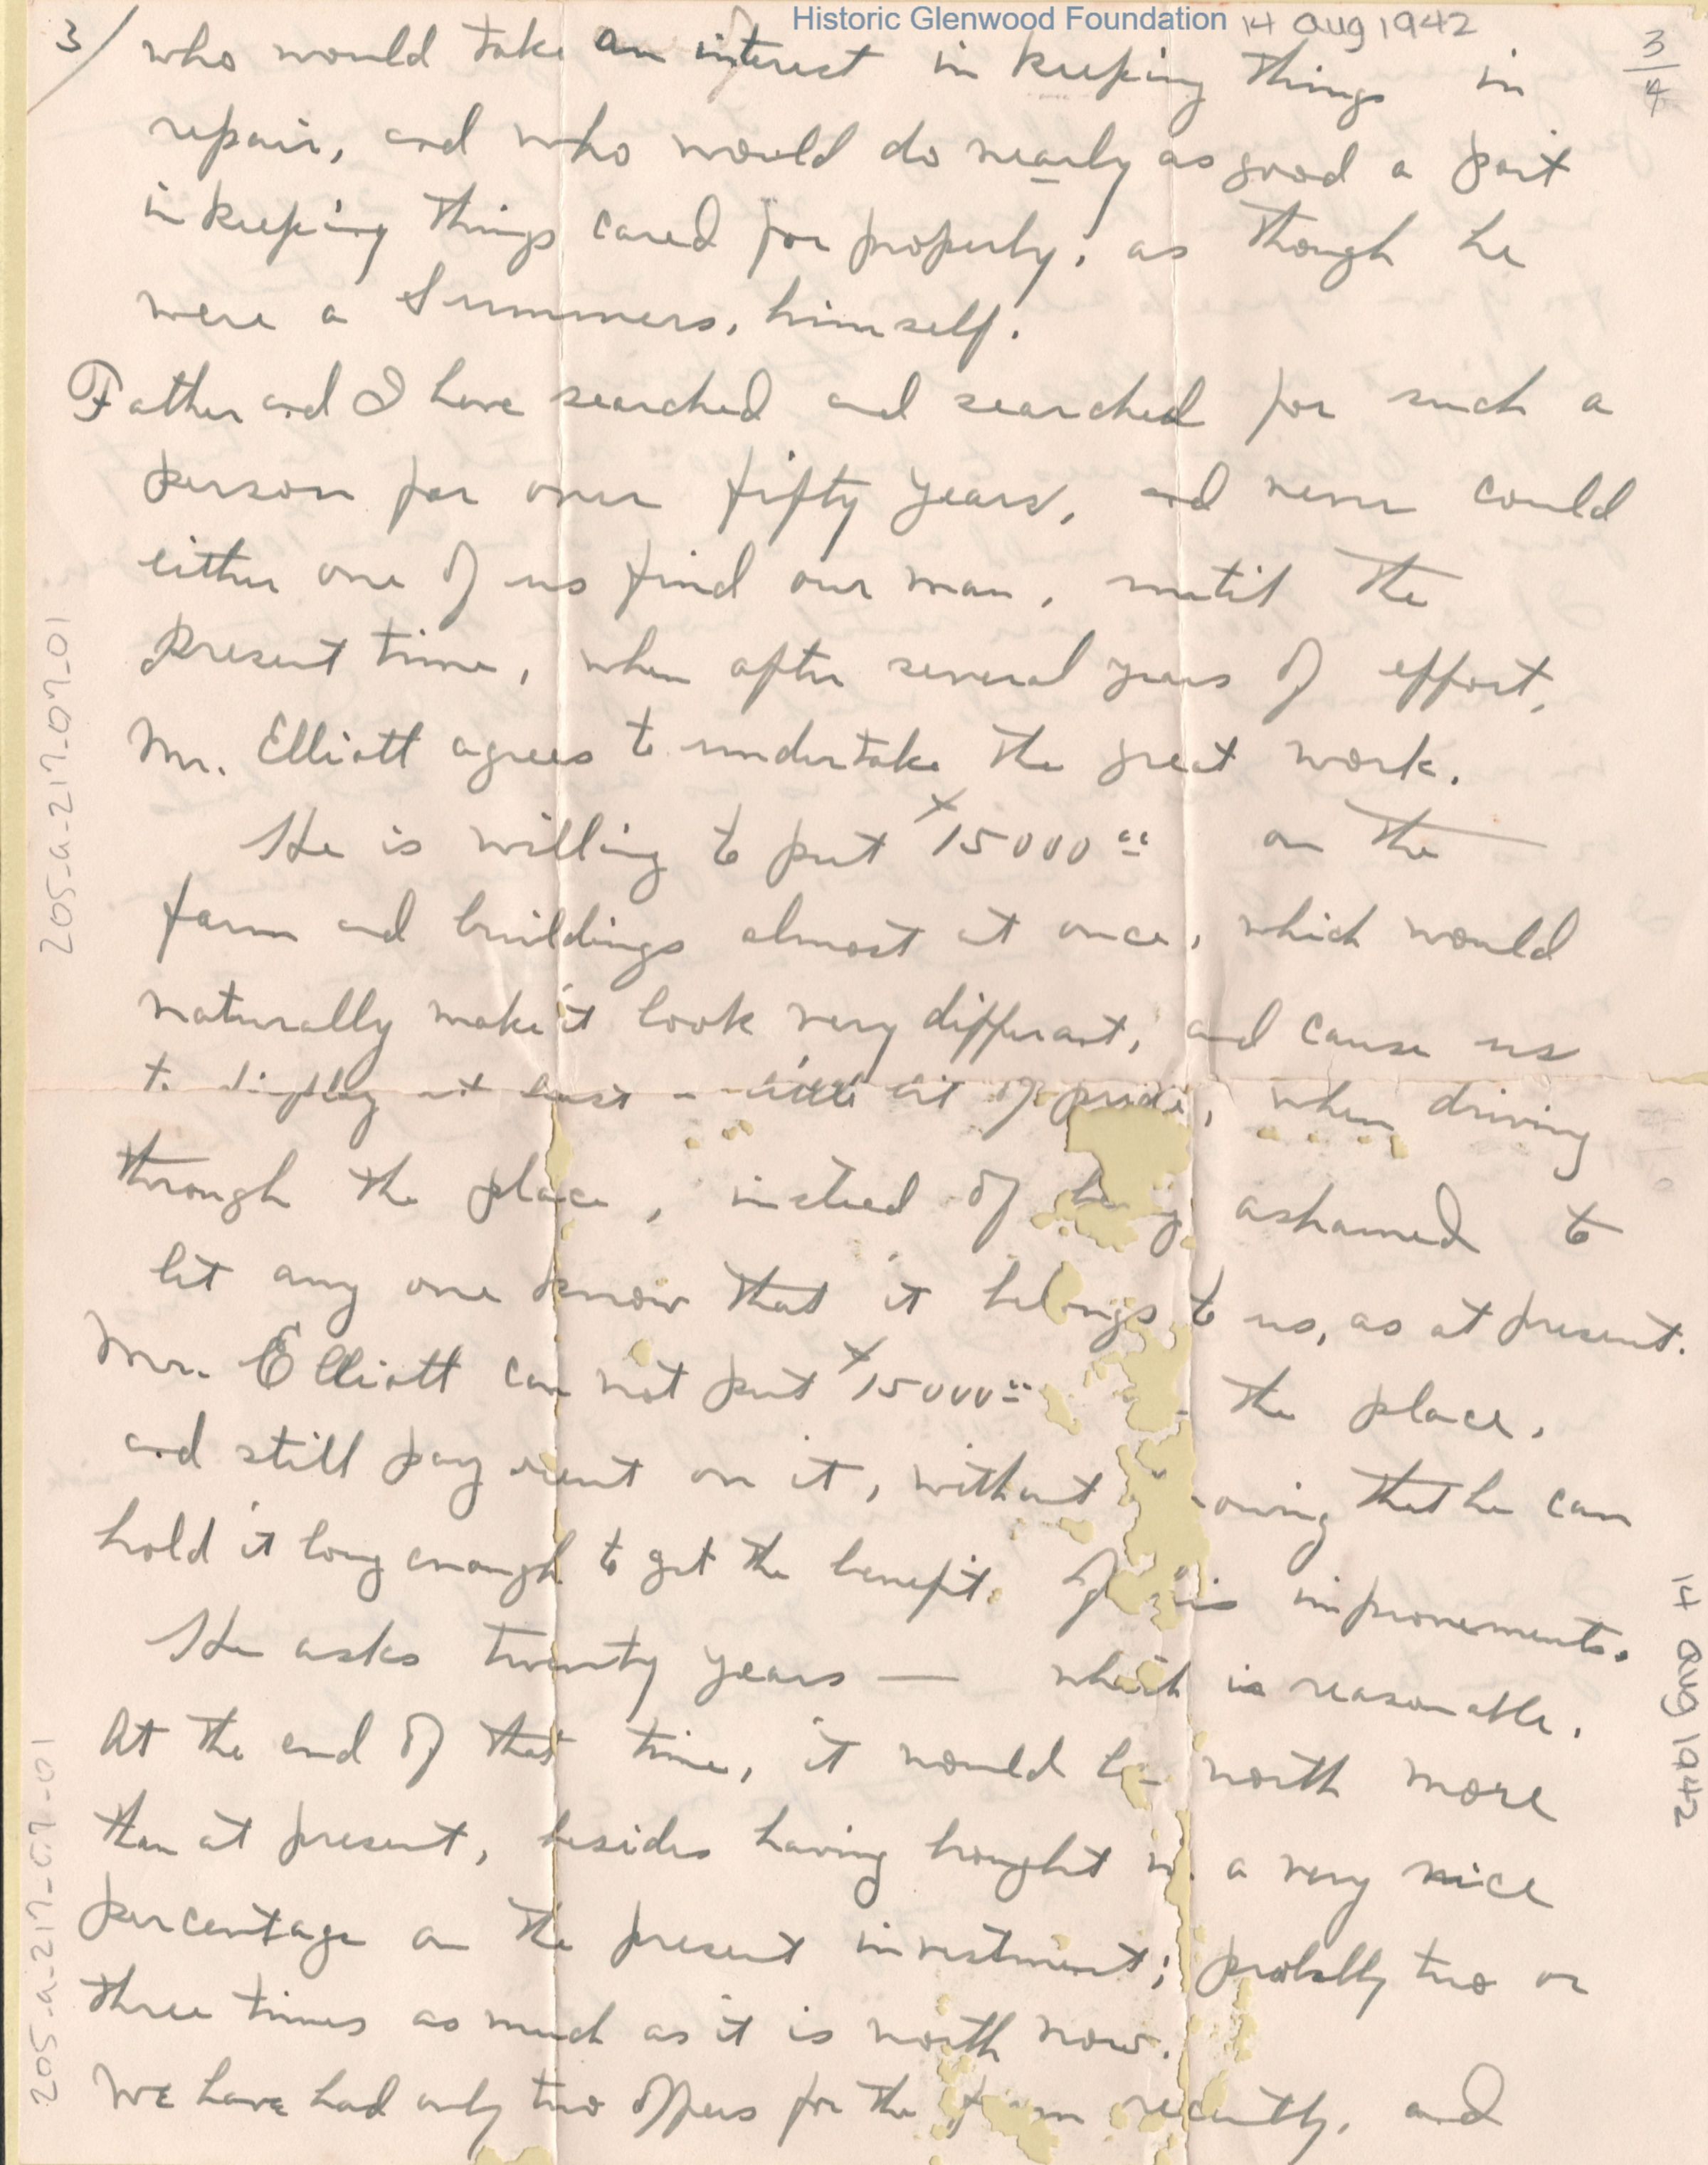 Historic Glenwood Foundation 14 Aug 1942
3/4
3/ who would take an interest in keeping things in
repair, and who would do nearly as good a part
in keeping things cared for properly, as though he
were a Summers, himself.
Father and I have searched and searched for such a
person for over fifty years, and never could
either one of us find our man, until the
present time, when after several years of effort,
Mr. Elliott agrees to undertake the great work.
He is willing to put $15000.00 on the
farm and buildings almost at once, which would
naturally make it look very different, and cause us
to display at least a little bit of pride, when driving
through the place, instead of being ashamed to
let any one know that it belongs to us, as at present.
Mr. Elliott can not put $15000.00 the place,
and still pay rent on it, without owing that he can
hold it long enough to get the benefit of his improvements.
He asks twenty years — which is reasonable.
At the end of that time, it would be worth more
than at present, besides having bought a very nice
percentage on the present investment; probably two or
three times as much as it is worth now.
We have had only two offers for the farm recently, and
205-a-217-07-01
205-a-217-07-01
14 Aug 1942